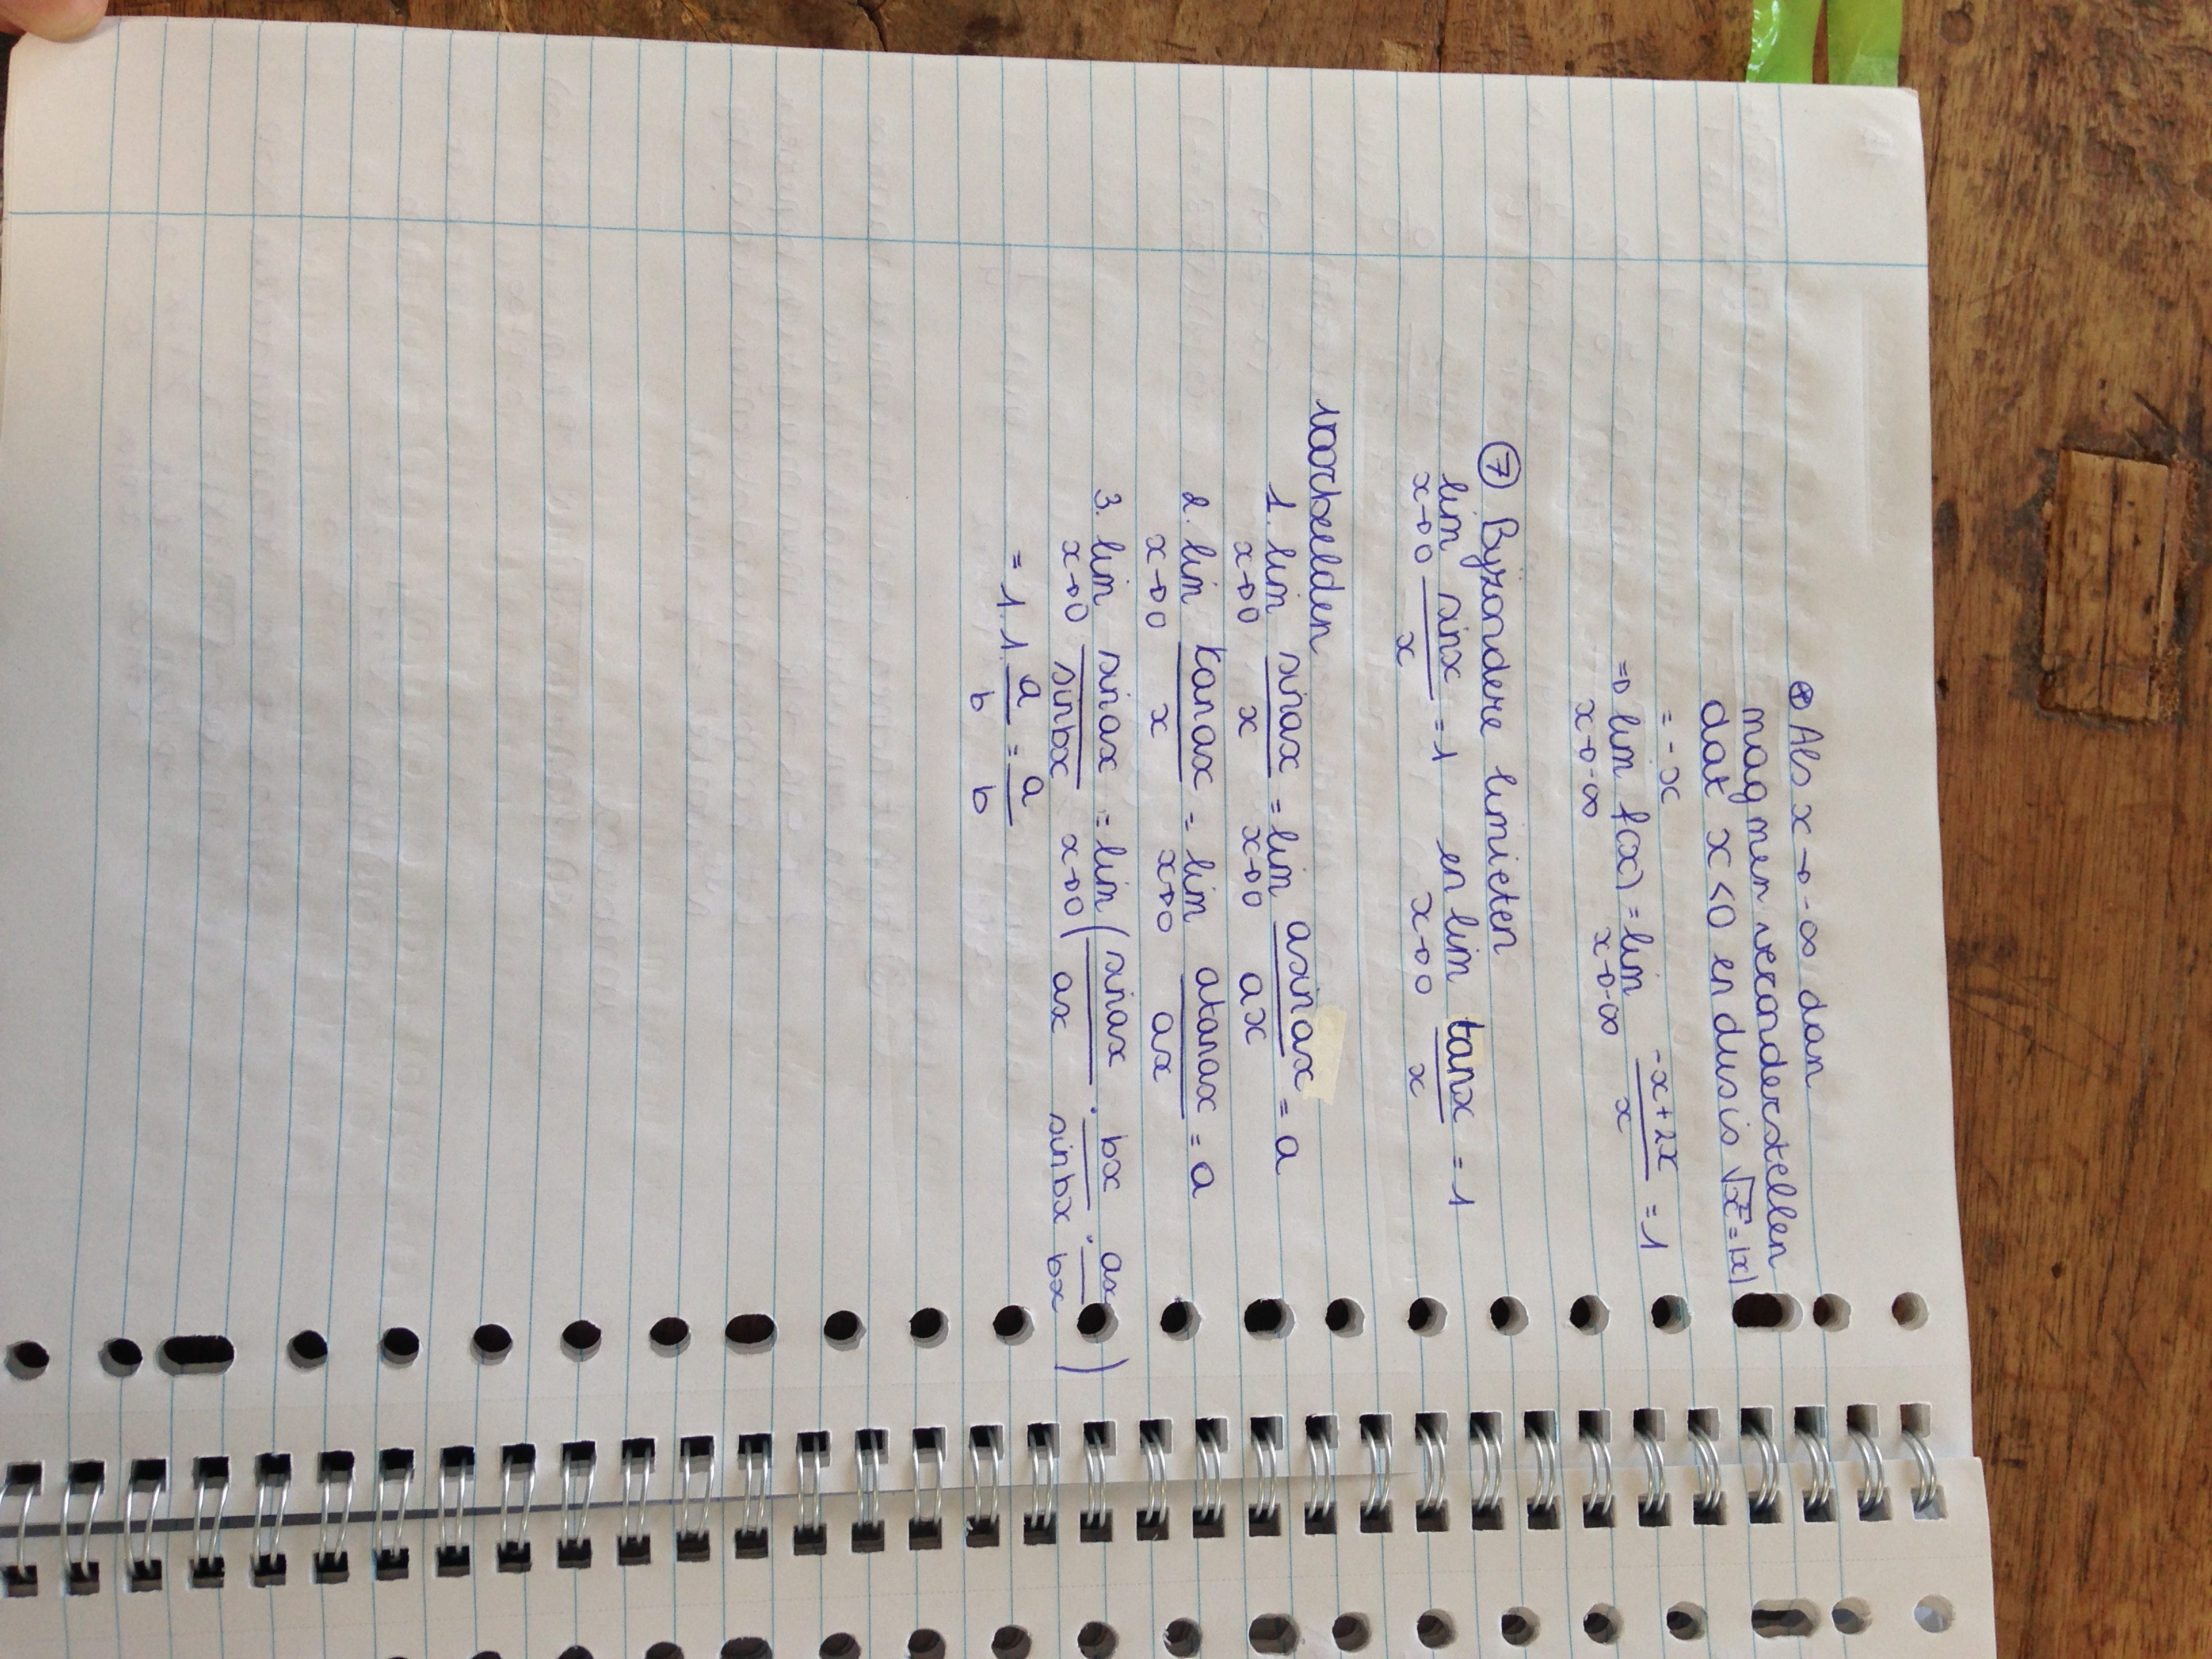 ⊛ Als x → -∞ dan
mag men veronderstellen
dat x < 0 en dus is √x² = |x|
= -x
⇒ lim f(x) = lim (-x + 2x)/x = 1
x→-∞ x→-∞
⑦ Bijzondere limieten
lim sinx/x = 1 en lim tanx/x = 1
x→0 x→0
voorbeelden
1. lim sinax/x = lim asinax/ax = a
x→0 x→0
2. lim tanax/x = lim atanax/ax = a
x→0 x→0
3. lim sinax/sinbx = lim (sinax/ax · bx/sinbx · ax/bx)
x→0 x→0
= 1.1. a/b = a/b